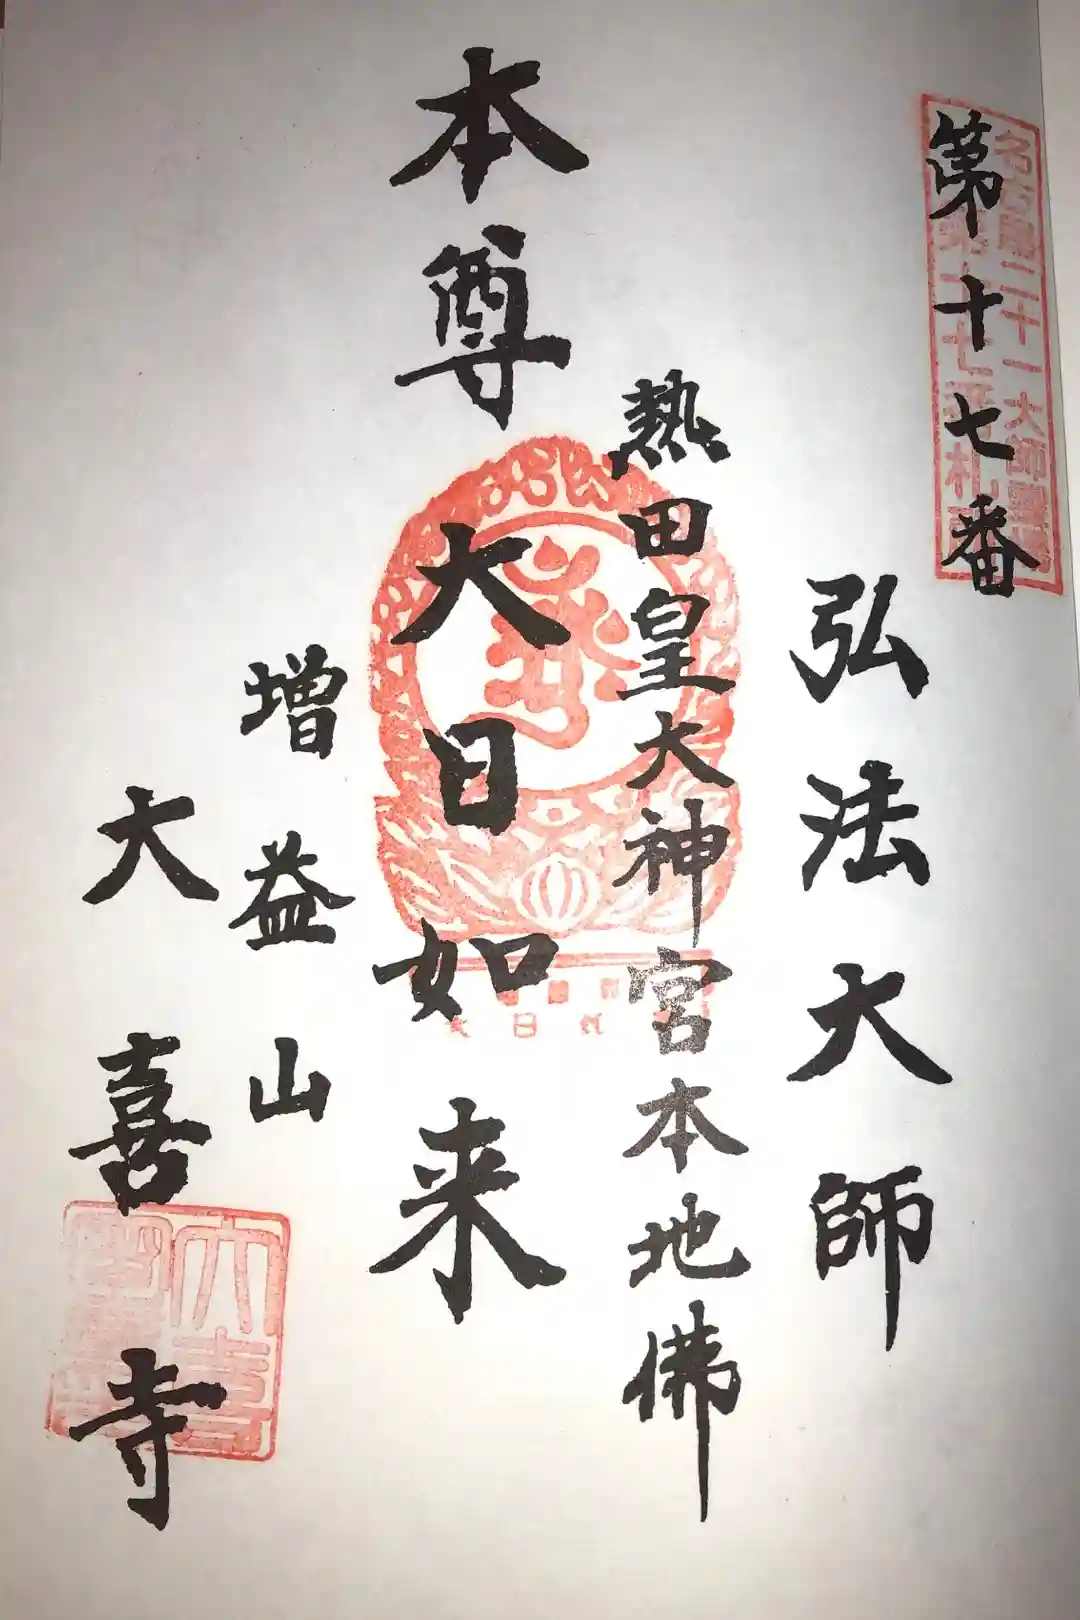 第十七番
名古屋二十一大師霊場
第十七番札所
弘法大師
熱田皇大神宮本地佛
本尊大日如来
増益山
大喜寺